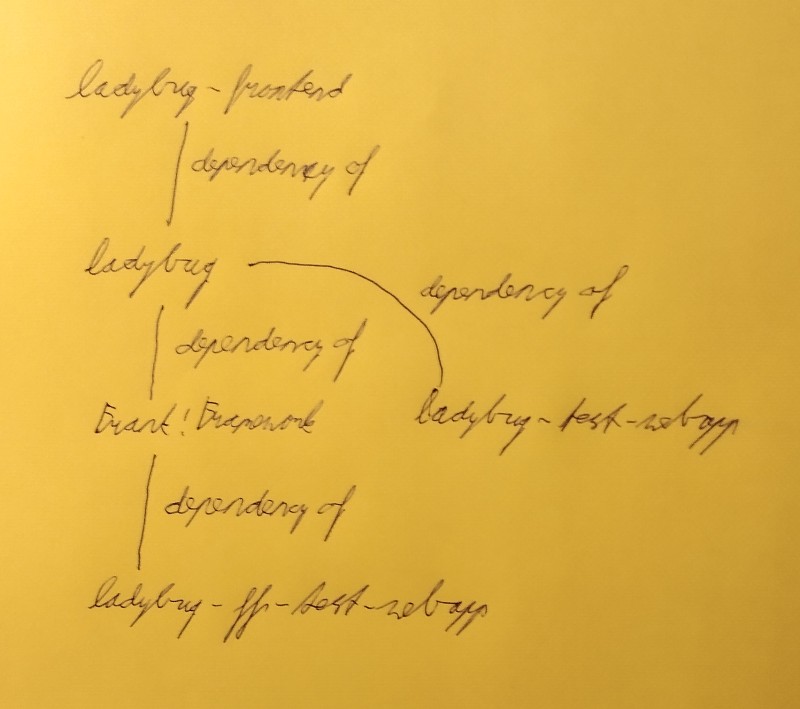 ladybug - frontend
dependency of
ladybug
dependency of
dependency of
Frank! Framework
ladybug - test - webapp
dependency of
ladybug - ff - test - webapp